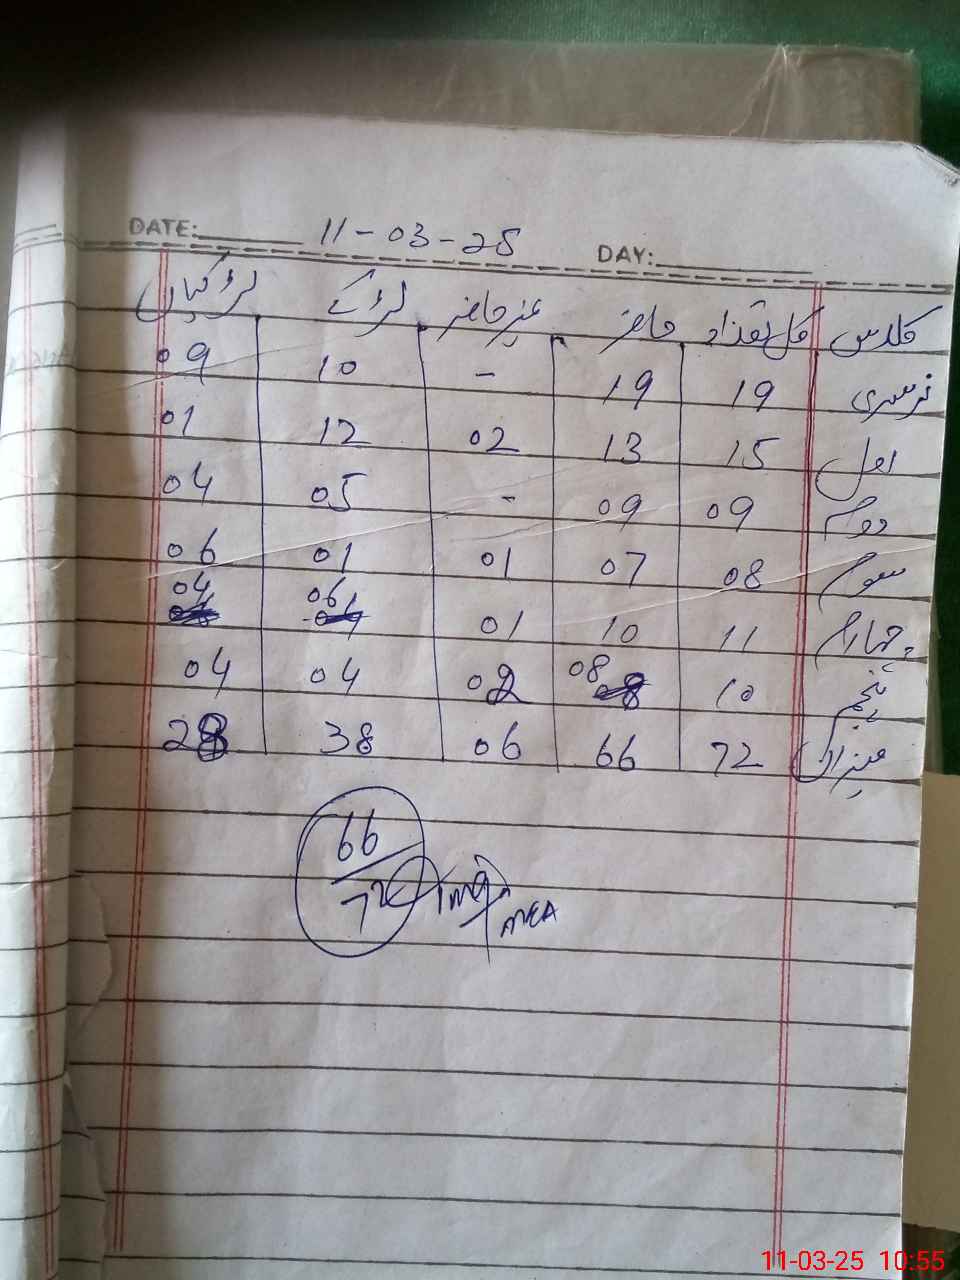 DATE: 11-03-25 DAY:
کلاس کل تعداد حاضر غیر حاضر لڑکے لڑکیاں
نرسری 19 19 - 10 09
اول 15 13 02 12 01
دوم 09 09 - 05 04
سوم 08 07 01 01 06
چہارم 11 10 01 06 04
پنجم 10 08 02 04 04
میزان 72 66 06 38 28
66
72
MEA
11-03-25 10:55